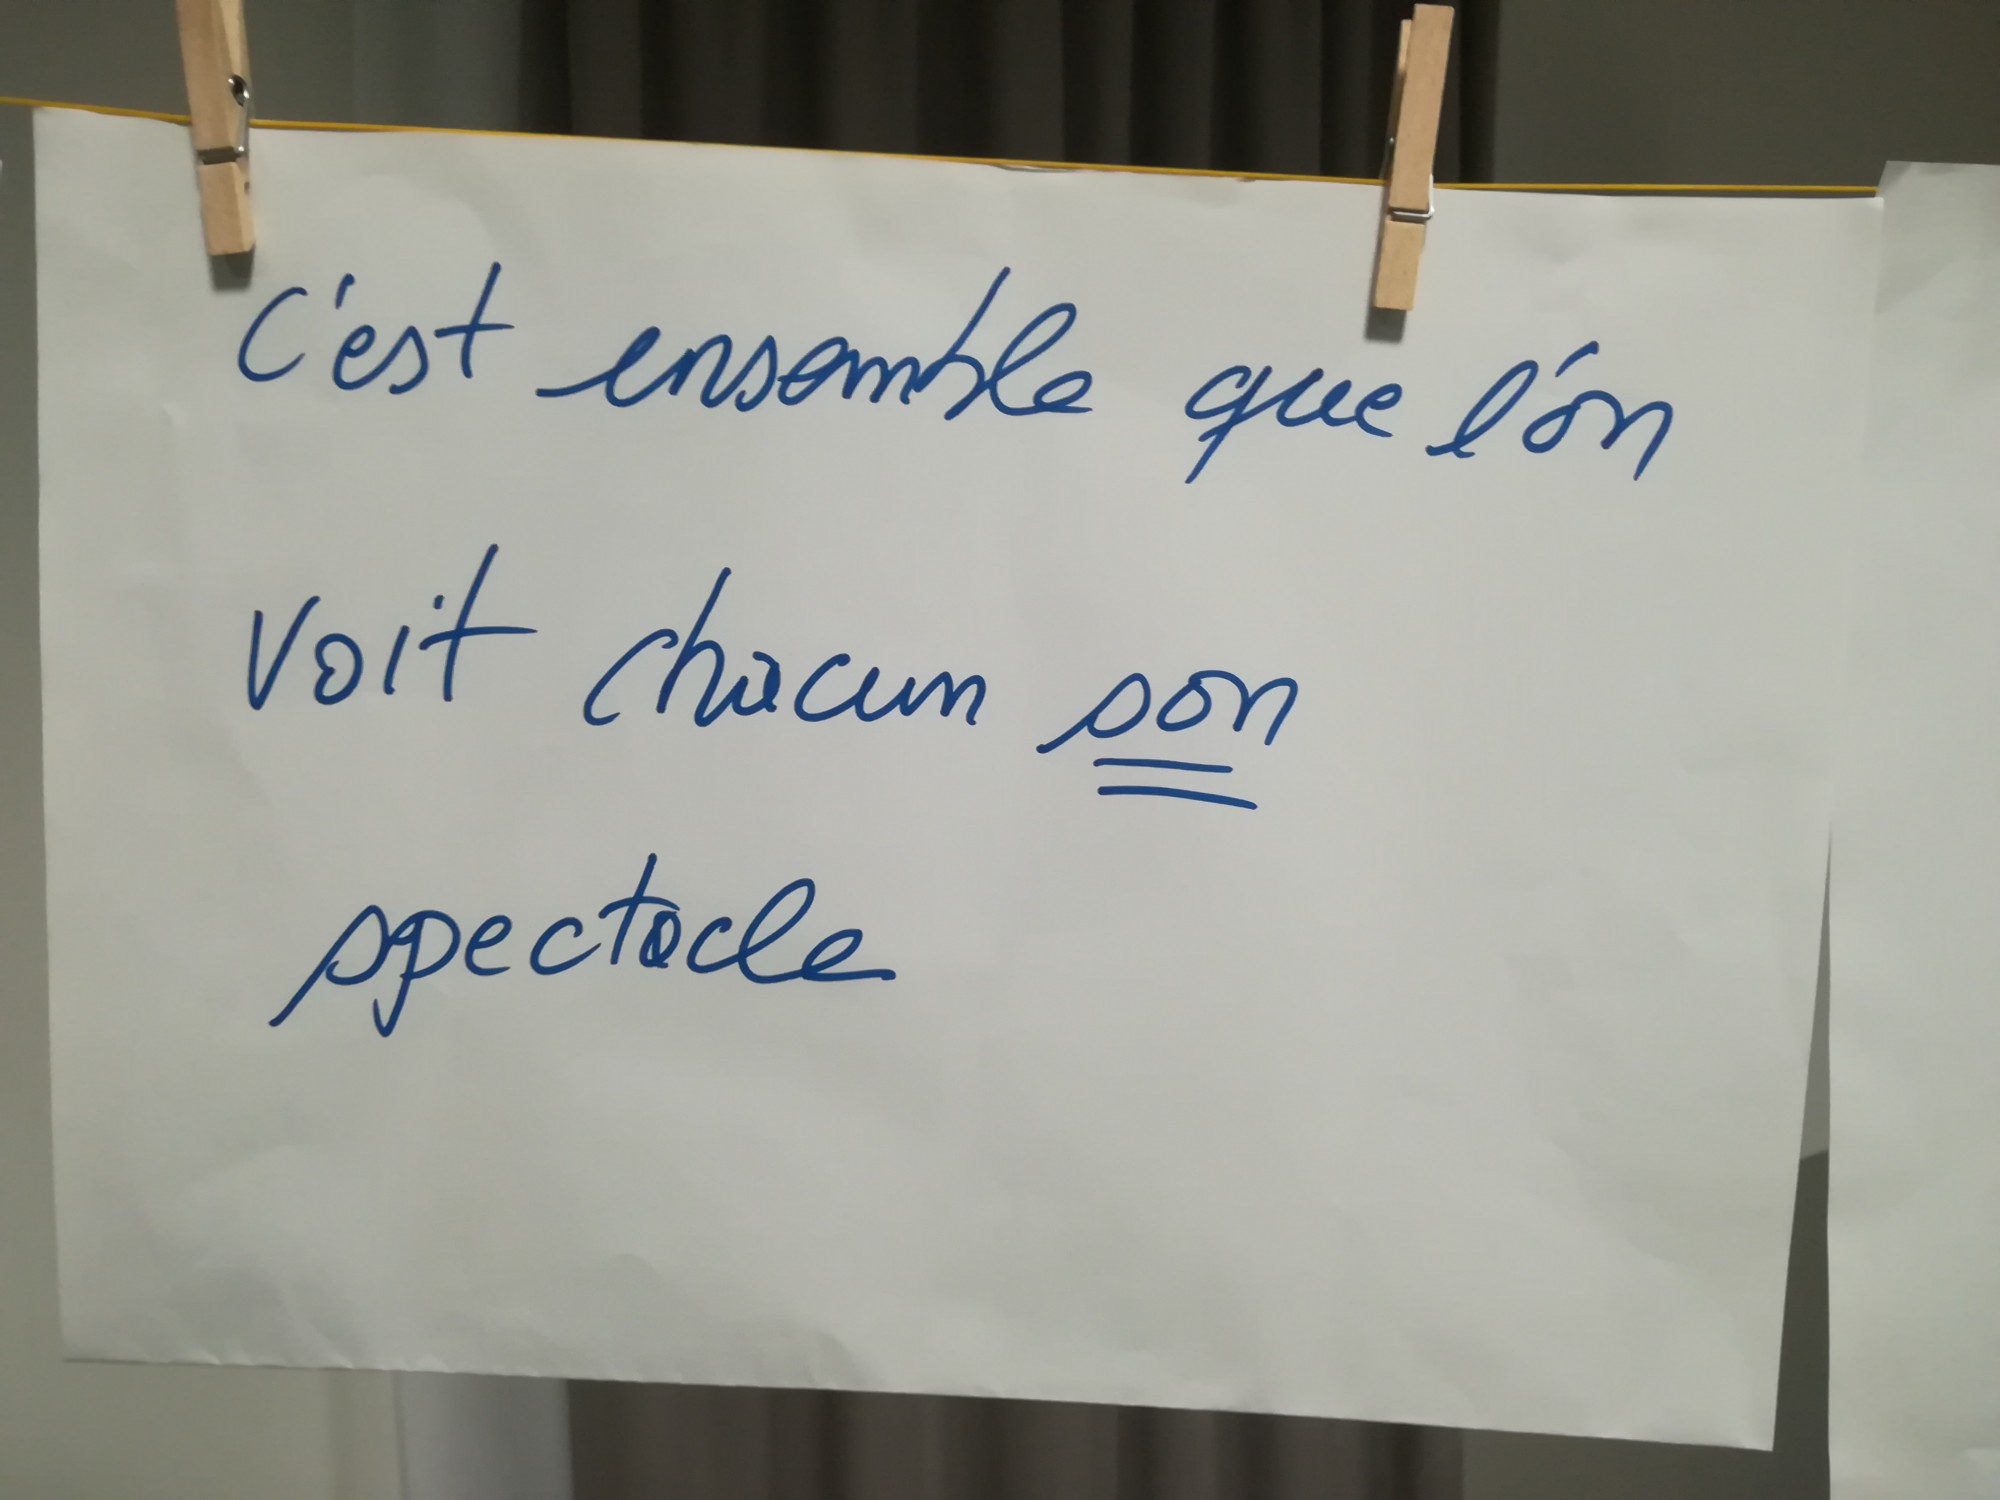 C'est ensemble que l'on
voit chacun son
spectacle